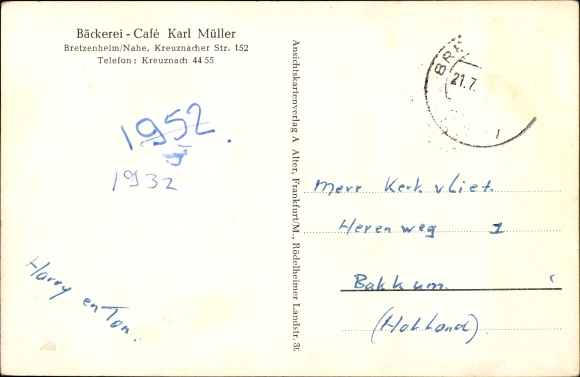 Bäckerei - Café Karl Müller
Bretzenheim/Nahe, Kreuznacher Str. 152
Telefon: Kreuznach 44 55
1952.
1932
Harry en Ton.
Ansichtskartenverlag A Alter, Frankfurt/M., Rödelheimer Landstr. 3
BR
21.7.
Merr Kerk vliet.
Heren weg 1
Bakkum.
(Holland)